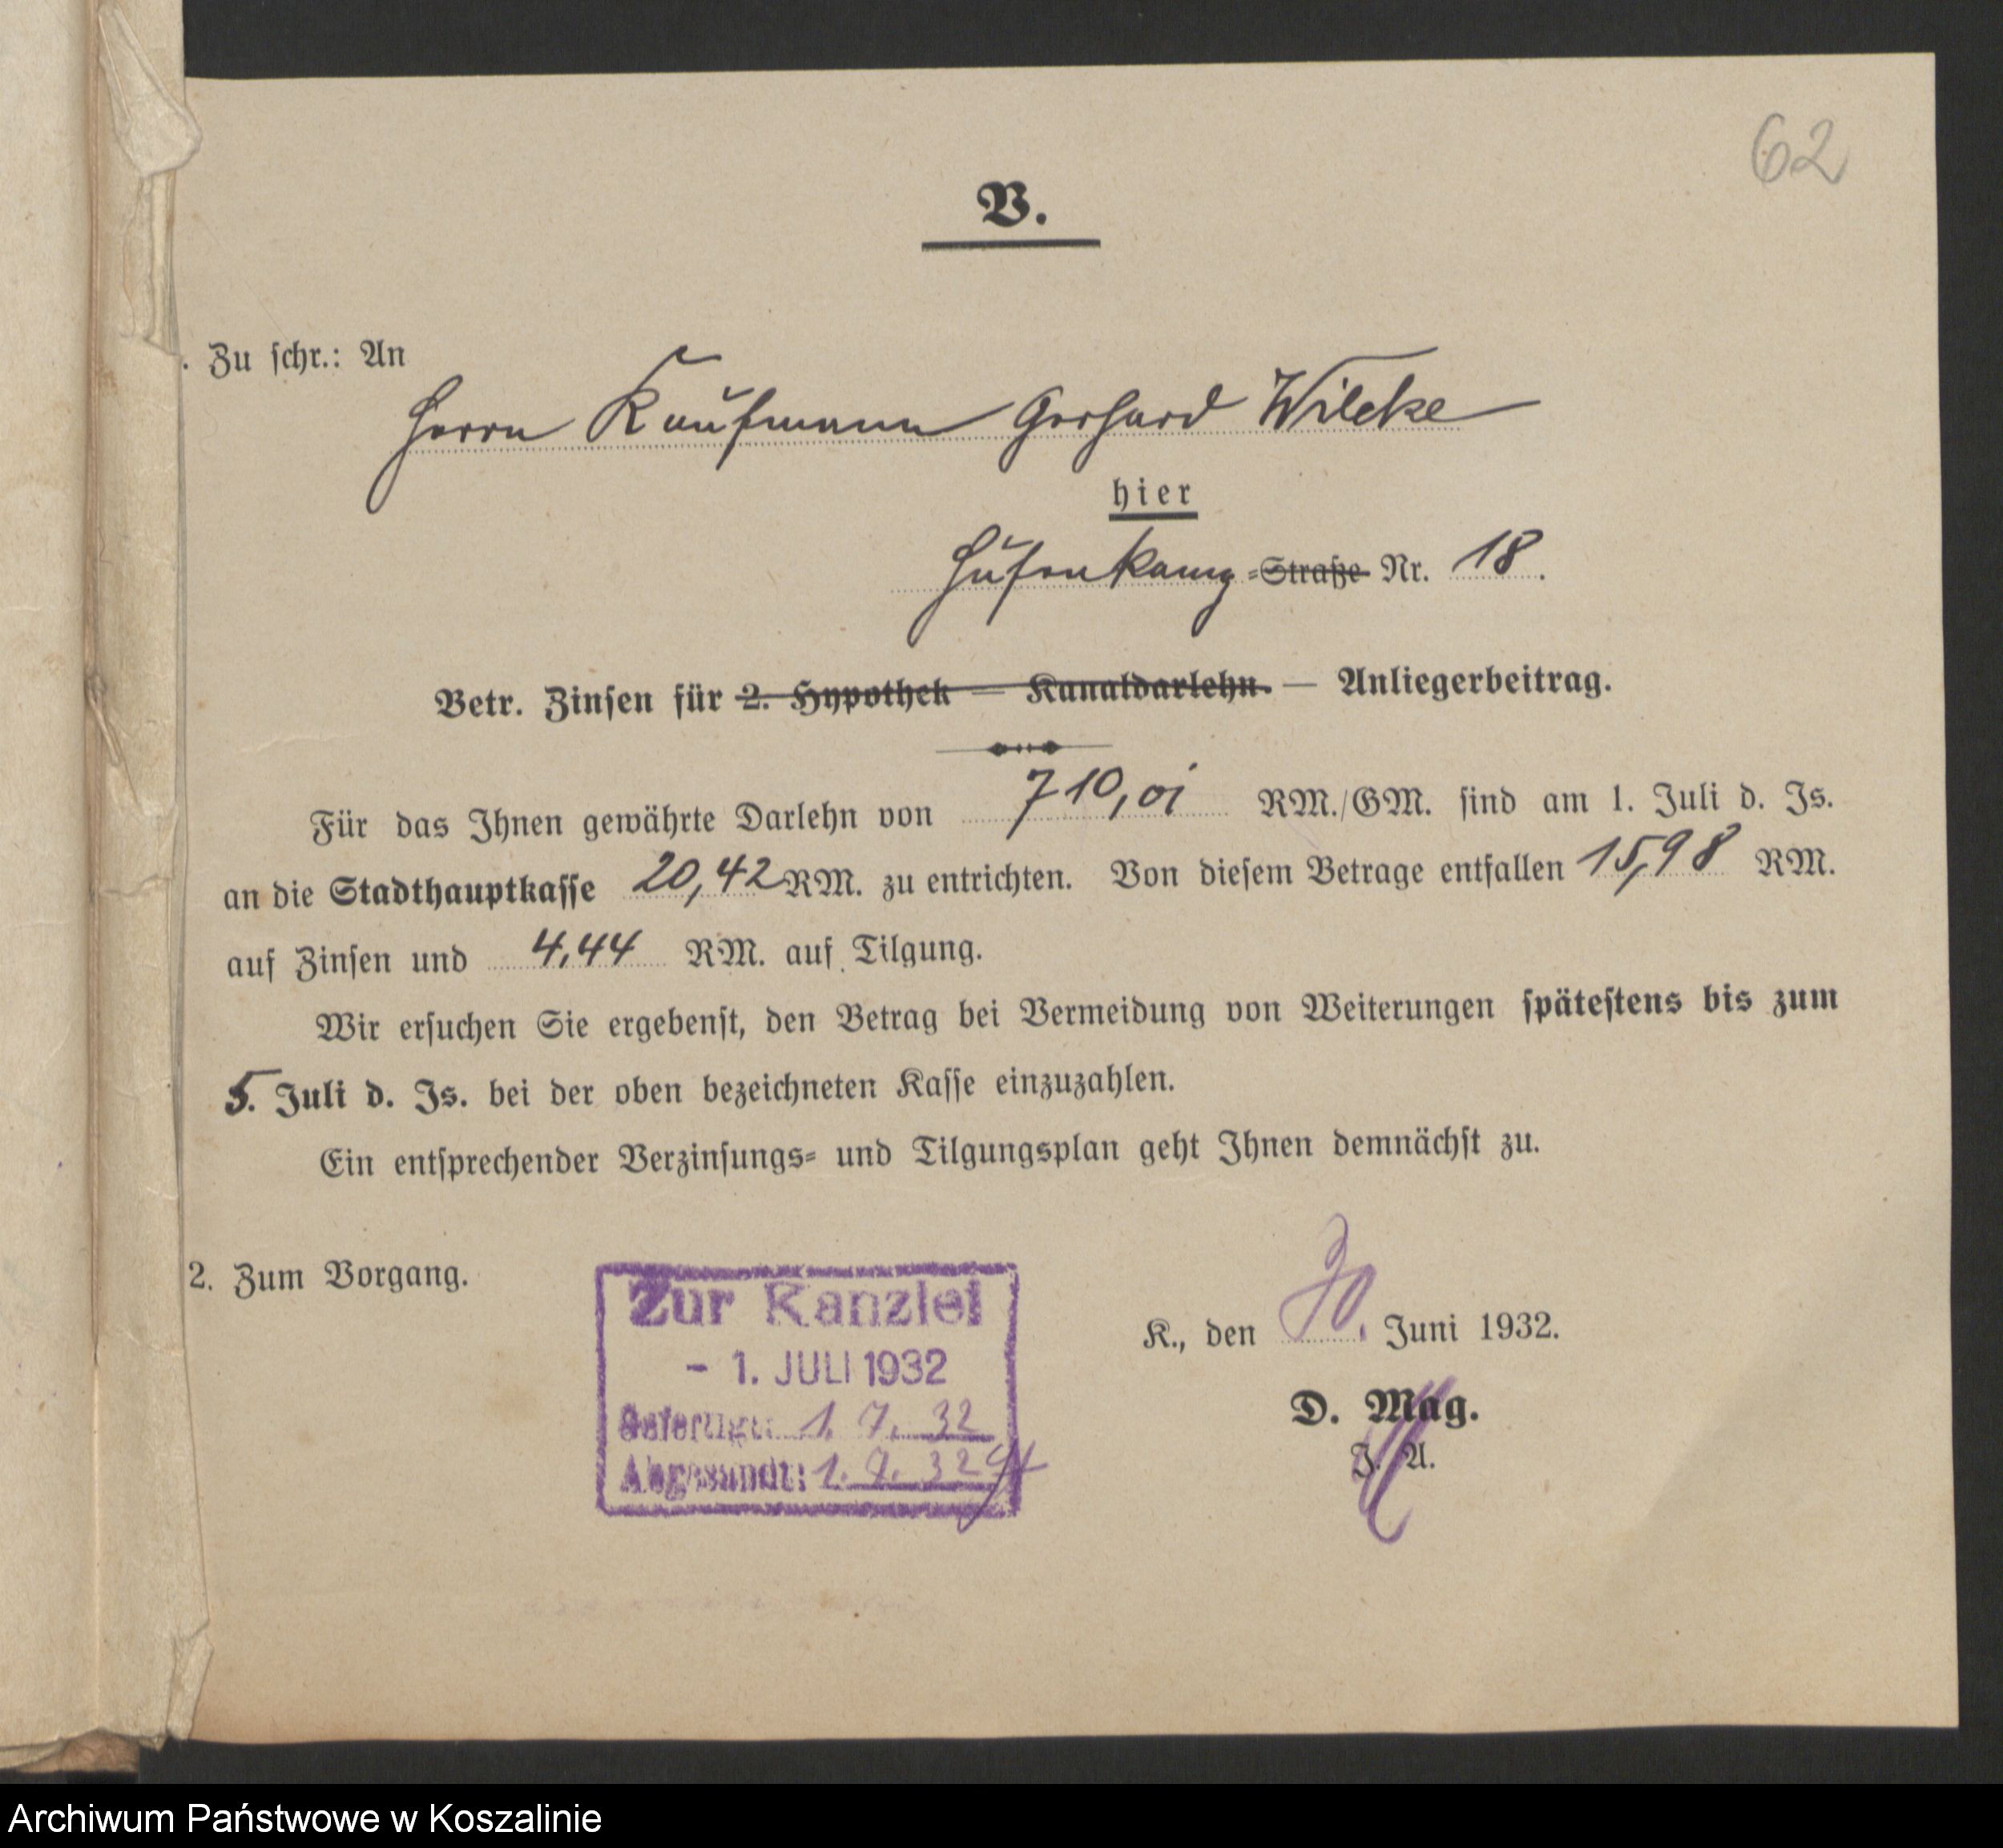 62
V.
. Zu schr.: An
Herrn Kaufmann Gerhard Wilcke
hier
Hufenkamp-Straße Nr. 18.
Betr. Zinsen für 2. Hypothek — Kanaldarlehn. — Anliegerbeitrag.
Für das Ihnen gewährte Darlehn von 710,01 RM./GM. sind am 1. Juli d. Js.
an die Stadthauptkasse 20,42 RM. zu entrichten. Von diesem Betrage entfallen 15,98 RM.
auf Zinsen und 4,44 RM. auf Tilgung.
Wir ersuchen Sie ergebenst, den Betrag bei Vermeidung von Weiterungen spätestens bis zum
5. Juli d. Js. bei der oben bezeichneten Kasse einzuzahlen.
Ein entsprechender Verzinsungs- und Tilgungsplan geht Ihnen demnächst zu.
2. Zum Vorgang.
Zur Kanzlei
- 1. JULI 1932
Gefertigt: 1. 7. 32
Abgesandt: 1. 7. 32
K., den 30. Juni 1932.
D. Mag.
J. A.
Archiwum Państwowe w Koszalinie